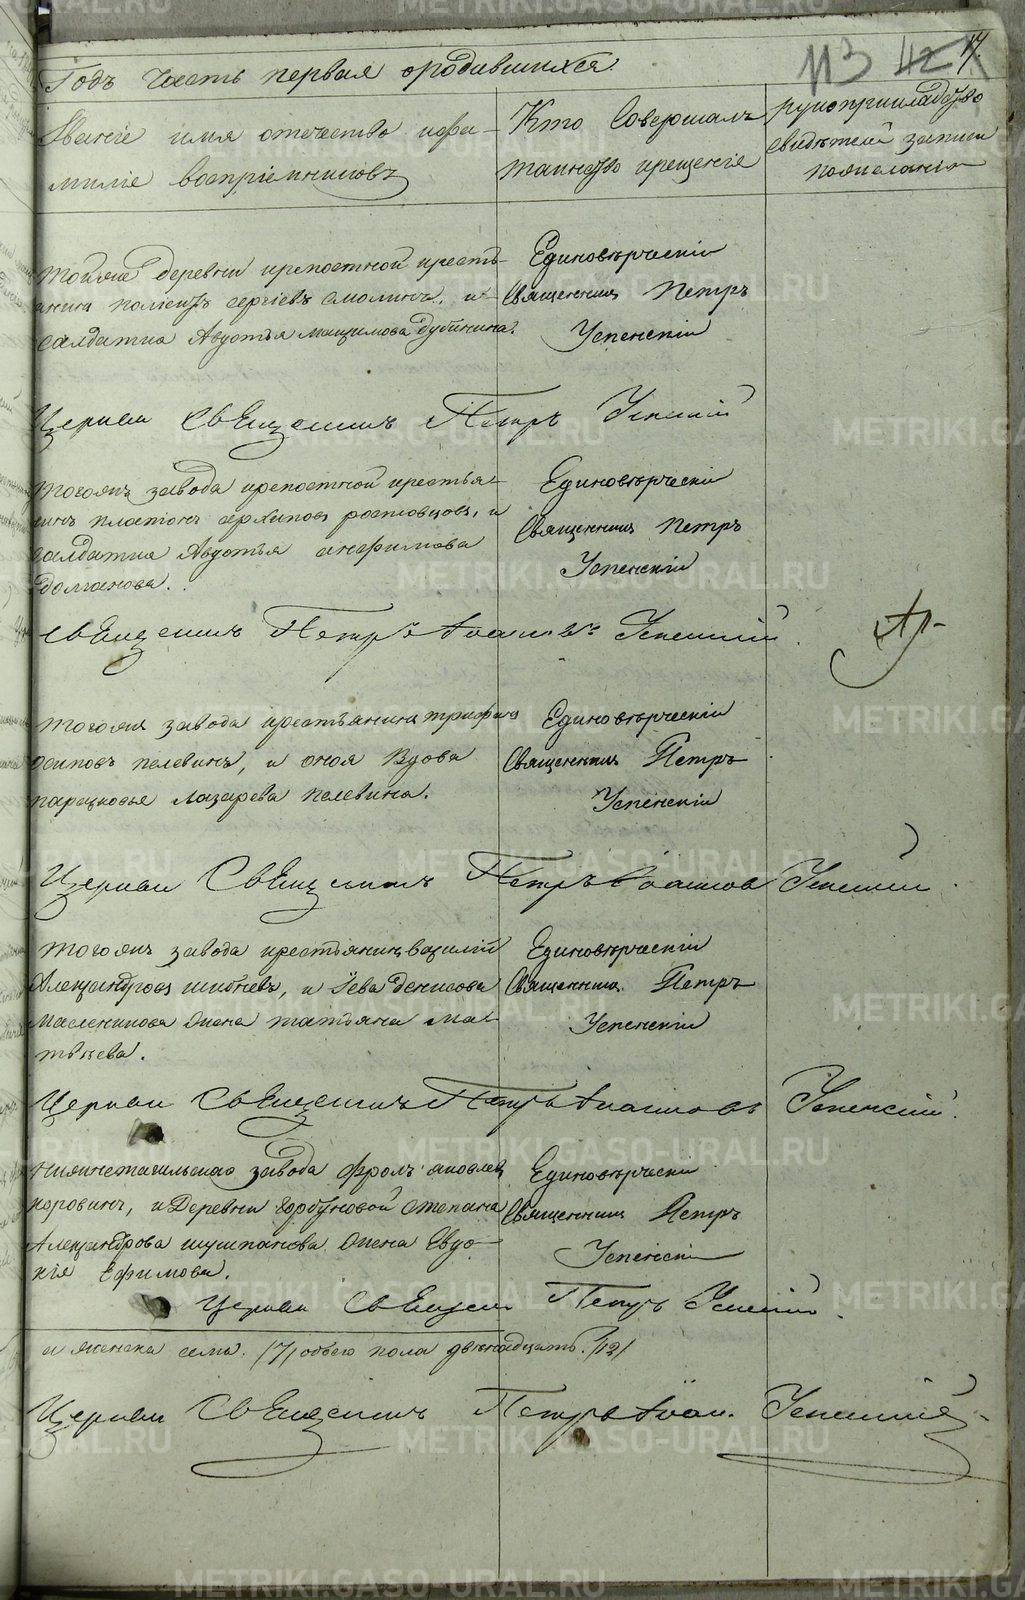 113 42 17
Годъ Часть первая ородившихся.
Званіе имя отечество ифа-
миліе воспріемниковъ
Кто Совершалъ
таинство крещенія
рукоприкладство
свидѣтелей записи
пожеланію
тойже деревни крепостной кресть-
янинъ сергіевъ смолинъ, и
Солдатка Авдотья максимова дубинина.
Единовѣрческій
Священникъ Петръ
Успенскій
Церкви Священникъ Петръ Успенскій
тогожъ завода крепостной крестья-
нинъ платонъ архиповъ ростовцовъ, и
солдатка Авдотья анфимова
Долганова.
Единовѣрчески
Священникъ Петръ
Успенскій
Священникъ Петръ Успенскій
тогожя завода крестьянинъ трифанъ
осиповъ пелевинъ, и оноя Вдова
парасковья лазарева пелевина.
Единовѣрческій
Священникъ Петръ
Успенскіи
Церкви Священникъ Петръ Успенскій
тогожъ завода крестьянинъ василій
Александровъ, и денисова
Масленикова жена татьяна Ма-
твѣева.
Единовѣрческій
Священникъ Петръ
Успенскій
Церкви Священникъ Петръ Успенскій.
нижнетагильскаго завода фролъ яковлевъ
коровинъ, и Деревни горбуновой степана
Александрова жена Евдо-
кія Ефимова.
Единовѣрчески
Священникъ Петръ
Успенскій
Церкви Священ Петръ Успенскій.
и женска семь. /7/ обоего пола двенадцать. /12/
Церкви Священникъ Петръ Іоан. Успенскій
METRIKI.GASO-URAL.RU